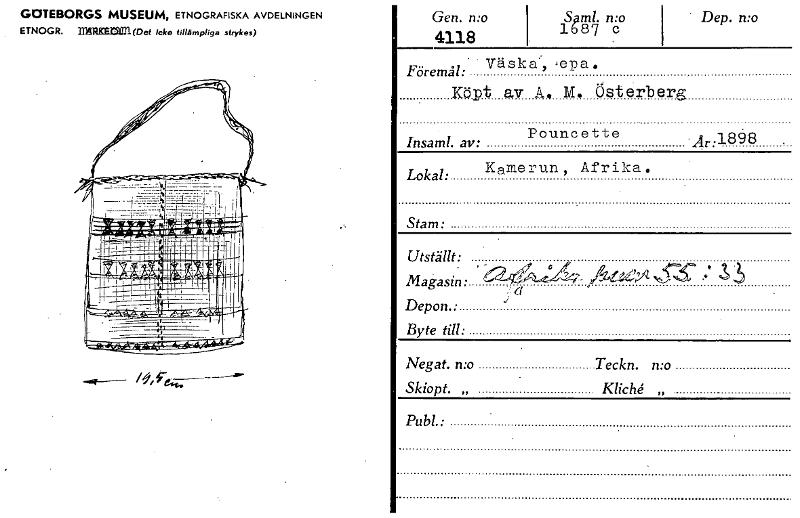 GÖTEBORGS MUSEUM, ETNOGRAFISKA AVDELNINGEN
ETNOGR. (Det icke tillämpliga strykes)
19,5 cm
Gen. n:o Saml. n:o Dep. n:o
4118 1687 c
Föremål: Väska, epa.
Köpt av A. M. Österberg
Insaml. av: Pouncette År: 1898
Lokal: Kamerun, Afrika.
Stam:
Utställt:
Magasin: Afrika 55:33
Depon.:
Byte till:
Negat. n:o Teckn. n:o
Skiopt. „ Kliché „
Publ.: